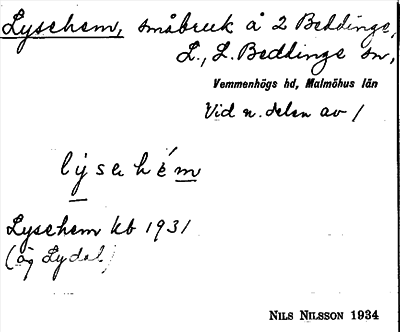 Lysehem, småbruk å 2 Beddinge,
L., L. Beddinge sn,
Vemmenhögs hd, Malmöhus län
Vid n. delen av /
lysehém
Lysehem kb 1931
(äg Lydal)
NILS NILSSON 1934